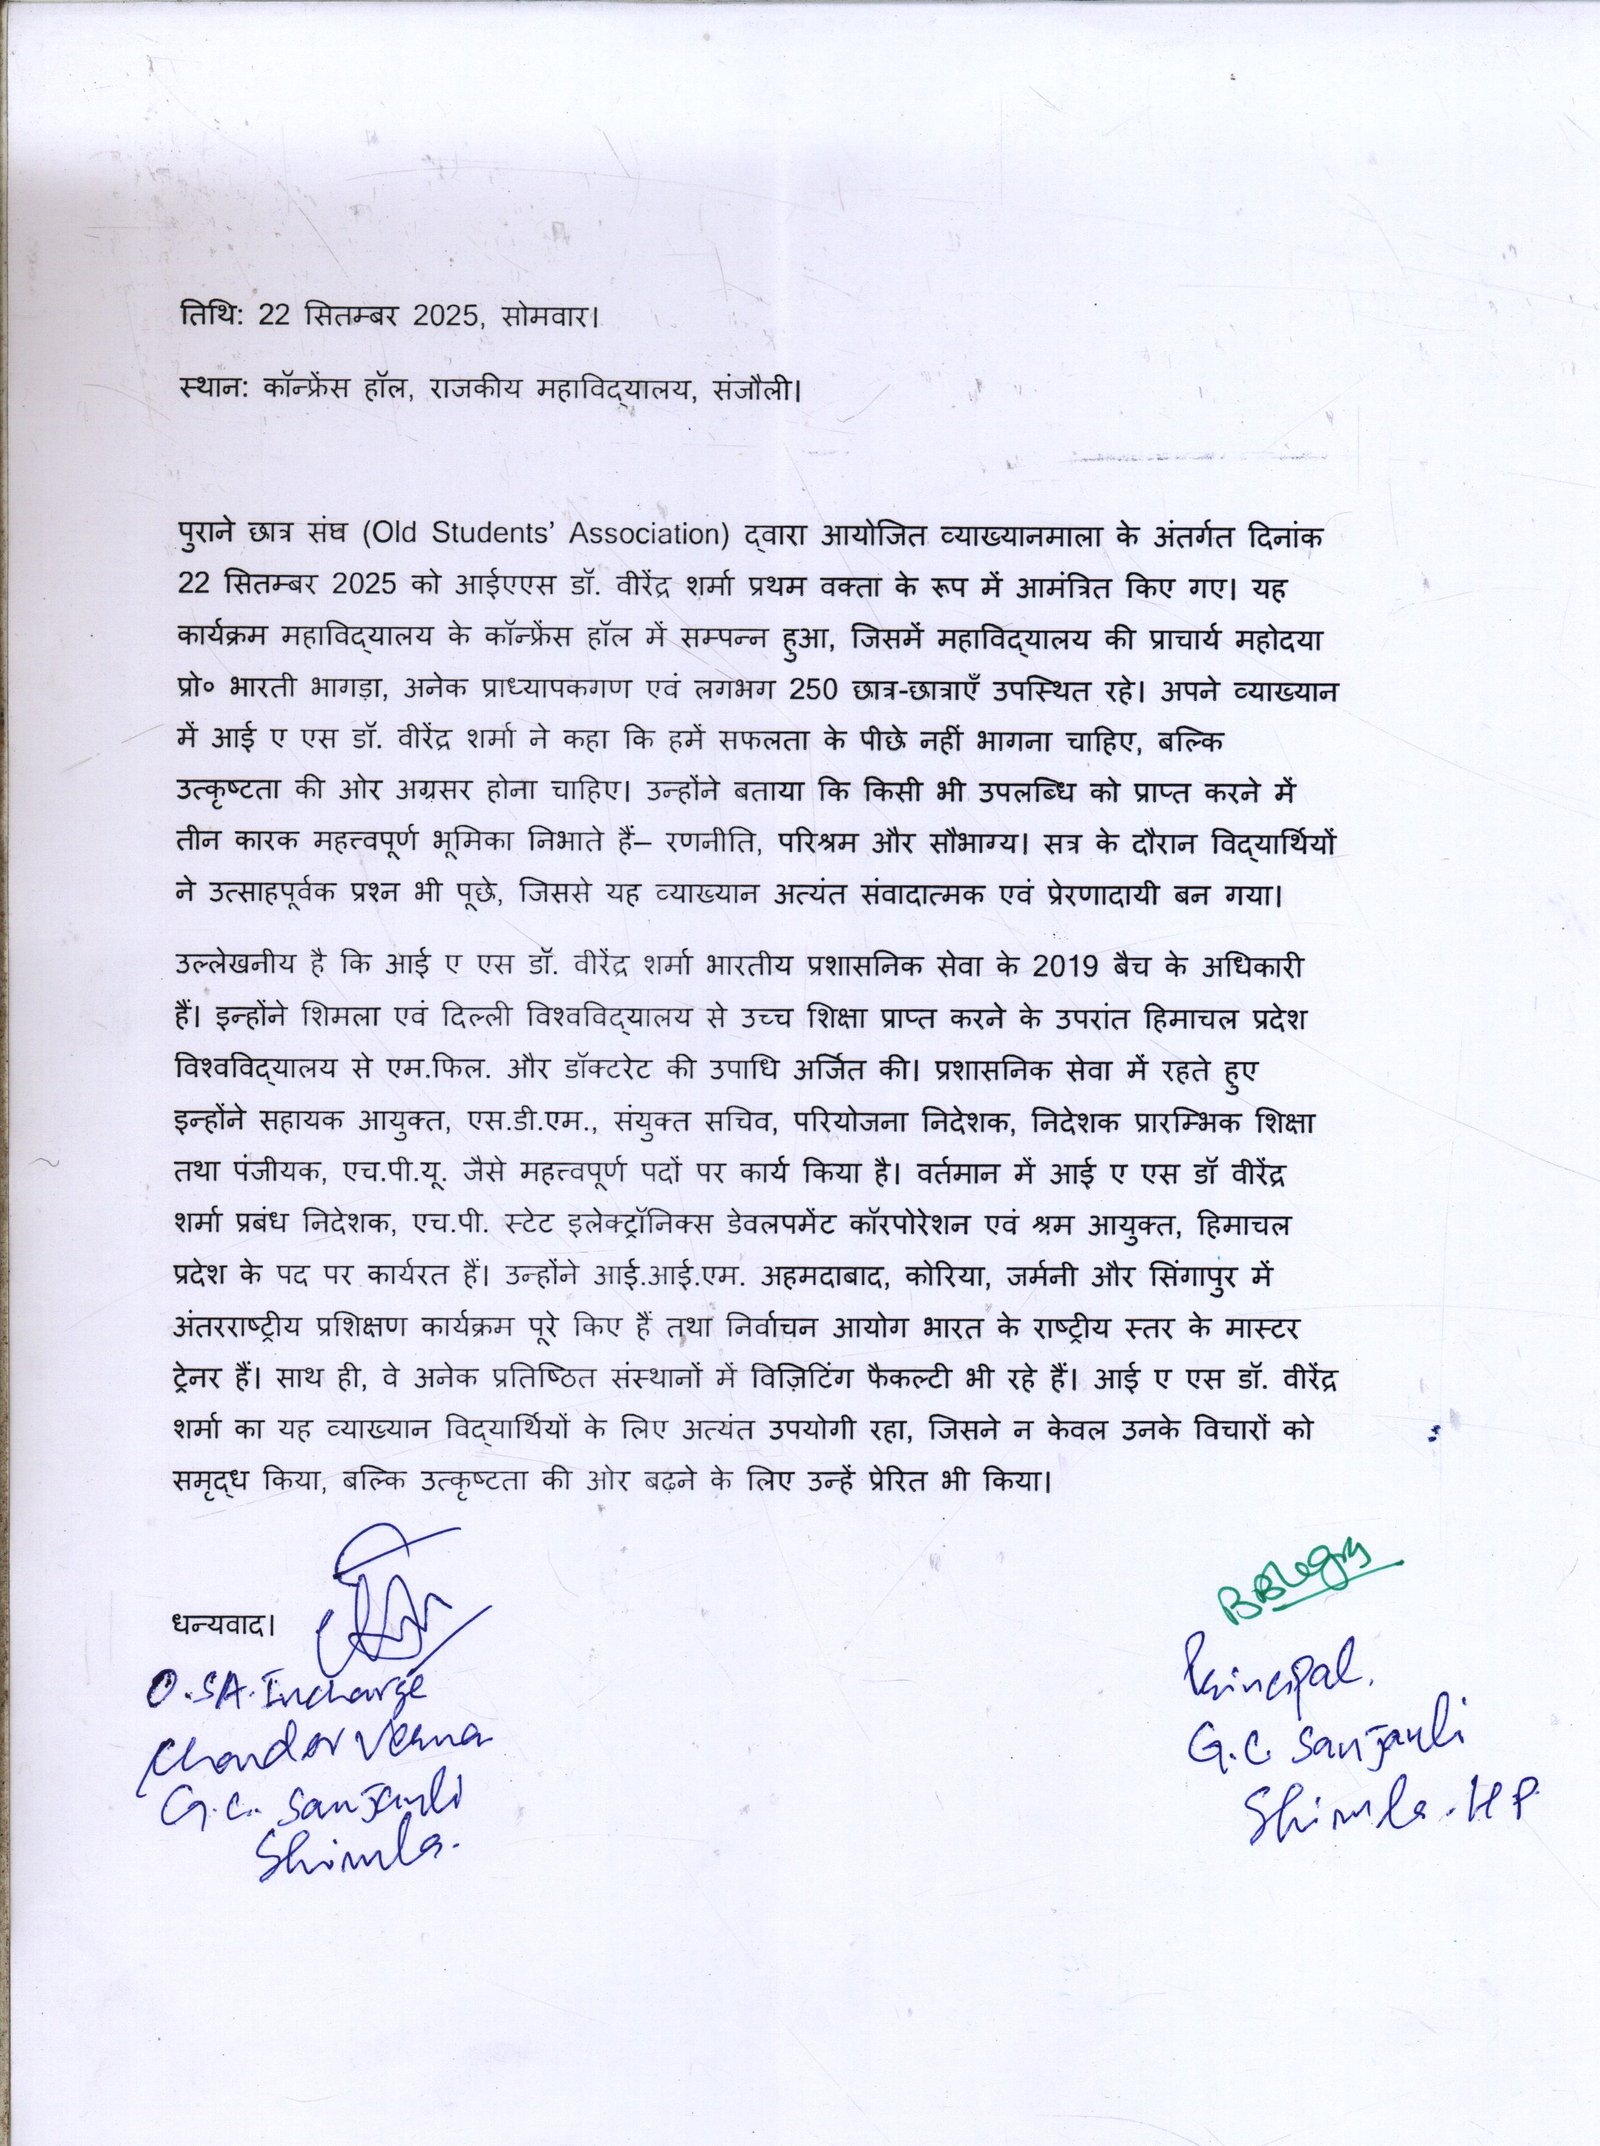 तिथि: 22 सितम्बर 2025, सोमवार।
स्थान: कॉन्फ्रेंस हॉल, राजकीय महाविद्यालय, संजौली।
पुराने छात्र संघ (Old Students’ Association) द्वारा आयोजित व्याख्यानमाला के अंतर्गत दिनांक
22 सितम्बर 2025 को आईएएस डॉ. वीरेंद्र शर्मा प्रथम वक्ता के रूप में आमंत्रित किए गए। यह
कार्यक्रम महाविद्यालय के कॉन्फ्रेंस हॉल में सम्पन्न हुआ, जिसमें महाविद्यालय की प्राचार्य महोदया
प्रो० भारती भागड़ा, अनेक प्राध्यापकगण एवं लगभग 250 छात्र-छात्राएँ उपस्थित रहे। अपने व्याख्यान
में आई ए एस डॉ. वीरेंद्र शर्मा ने कहा कि हमें सफलता के पीछे नहीं भागना चाहिए, बल्कि
उत्कृष्टता की ओर अग्रसर होना चाहिए। उन्होंने बताया कि किसी भी उपलब्धि को प्राप्त करने में
तीन कारक महत्त्वपूर्ण भूमिका निभाते हैं– रणनीति, परिश्रम और सौभाग्य। सत्र के दौरान विद्यार्थियों
ने उत्साहपूर्वक प्रश्न भी पूछे, जिससे यह व्याख्यान अत्यंत संवादात्मक एवं प्रेरणादायी बन गया।
उल्लेखनीय है कि आई ए एस डॉ. वीरेंद्र शर्मा भारतीय प्रशासनिक सेवा के 2019 बैच के अधिकारी
हैं। इन्होंने शिमला एवं दिल्ली विश्वविद्यालय से उच्च शिक्षा प्राप्त करने के उपरांत हिमाचल प्रदेश
विश्वविद्यालय से एम.फिल. और डॉक्टरेट की उपाधि अर्जित की। प्रशासनिक सेवा में रहते हुए
इन्होंने सहायक आयुक्त, एस.डी.एम., संयुक्त सचिव, परियोजना निदेशक, निदेशक प्रारम्भिक शिक्षा
तथा पंजीयक, एच.पी.यू. जैसे महत्त्वपूर्ण पदों पर कार्य किया है। वर्तमान में आई ए एस डॉ वीरेंद्र
शर्मा प्रबंध निदेशक, एच.पी. स्टेट इलेक्ट्रॉनिक्स डेवलपमेंट कॉरपोरेशन एवं श्रम आयुक्त, हिमाचल
प्रदेश के पद पर कार्यरत हैं। उन्होंने आई.आई.एम. अहमदाबाद, कोरिया, जर्मनी और सिंगापुर में
अंतरराष्ट्रीय प्रशिक्षण कार्यक्रम पूरे किए हैं तथा निर्वाचन आयोग भारत के राष्ट्रीय स्तर के मास्टर
ट्रेनर हैं। साथ ही, वे अनेक प्रतिष्ठित संस्थानों में विज़िटिंग फैकल्टी भी रहे हैं। आई ए एस डॉ. वीरेंद्र
शर्मा का यह व्याख्यान विद्यार्थियों के लिए अत्यंत उपयोगी रहा, जिसने न केवल उनके विचारों को
समृद्ध किया, बल्कि उत्कृष्टता की ओर बढ़ने के लिए उन्हें प्रेरित भी किया।
धन्यवाद।
O.SA.Incharge
Chander Verma
G.C. Sanjauli
Shimla.
Principal.
G.C. Sanjauli
Shimla.HP